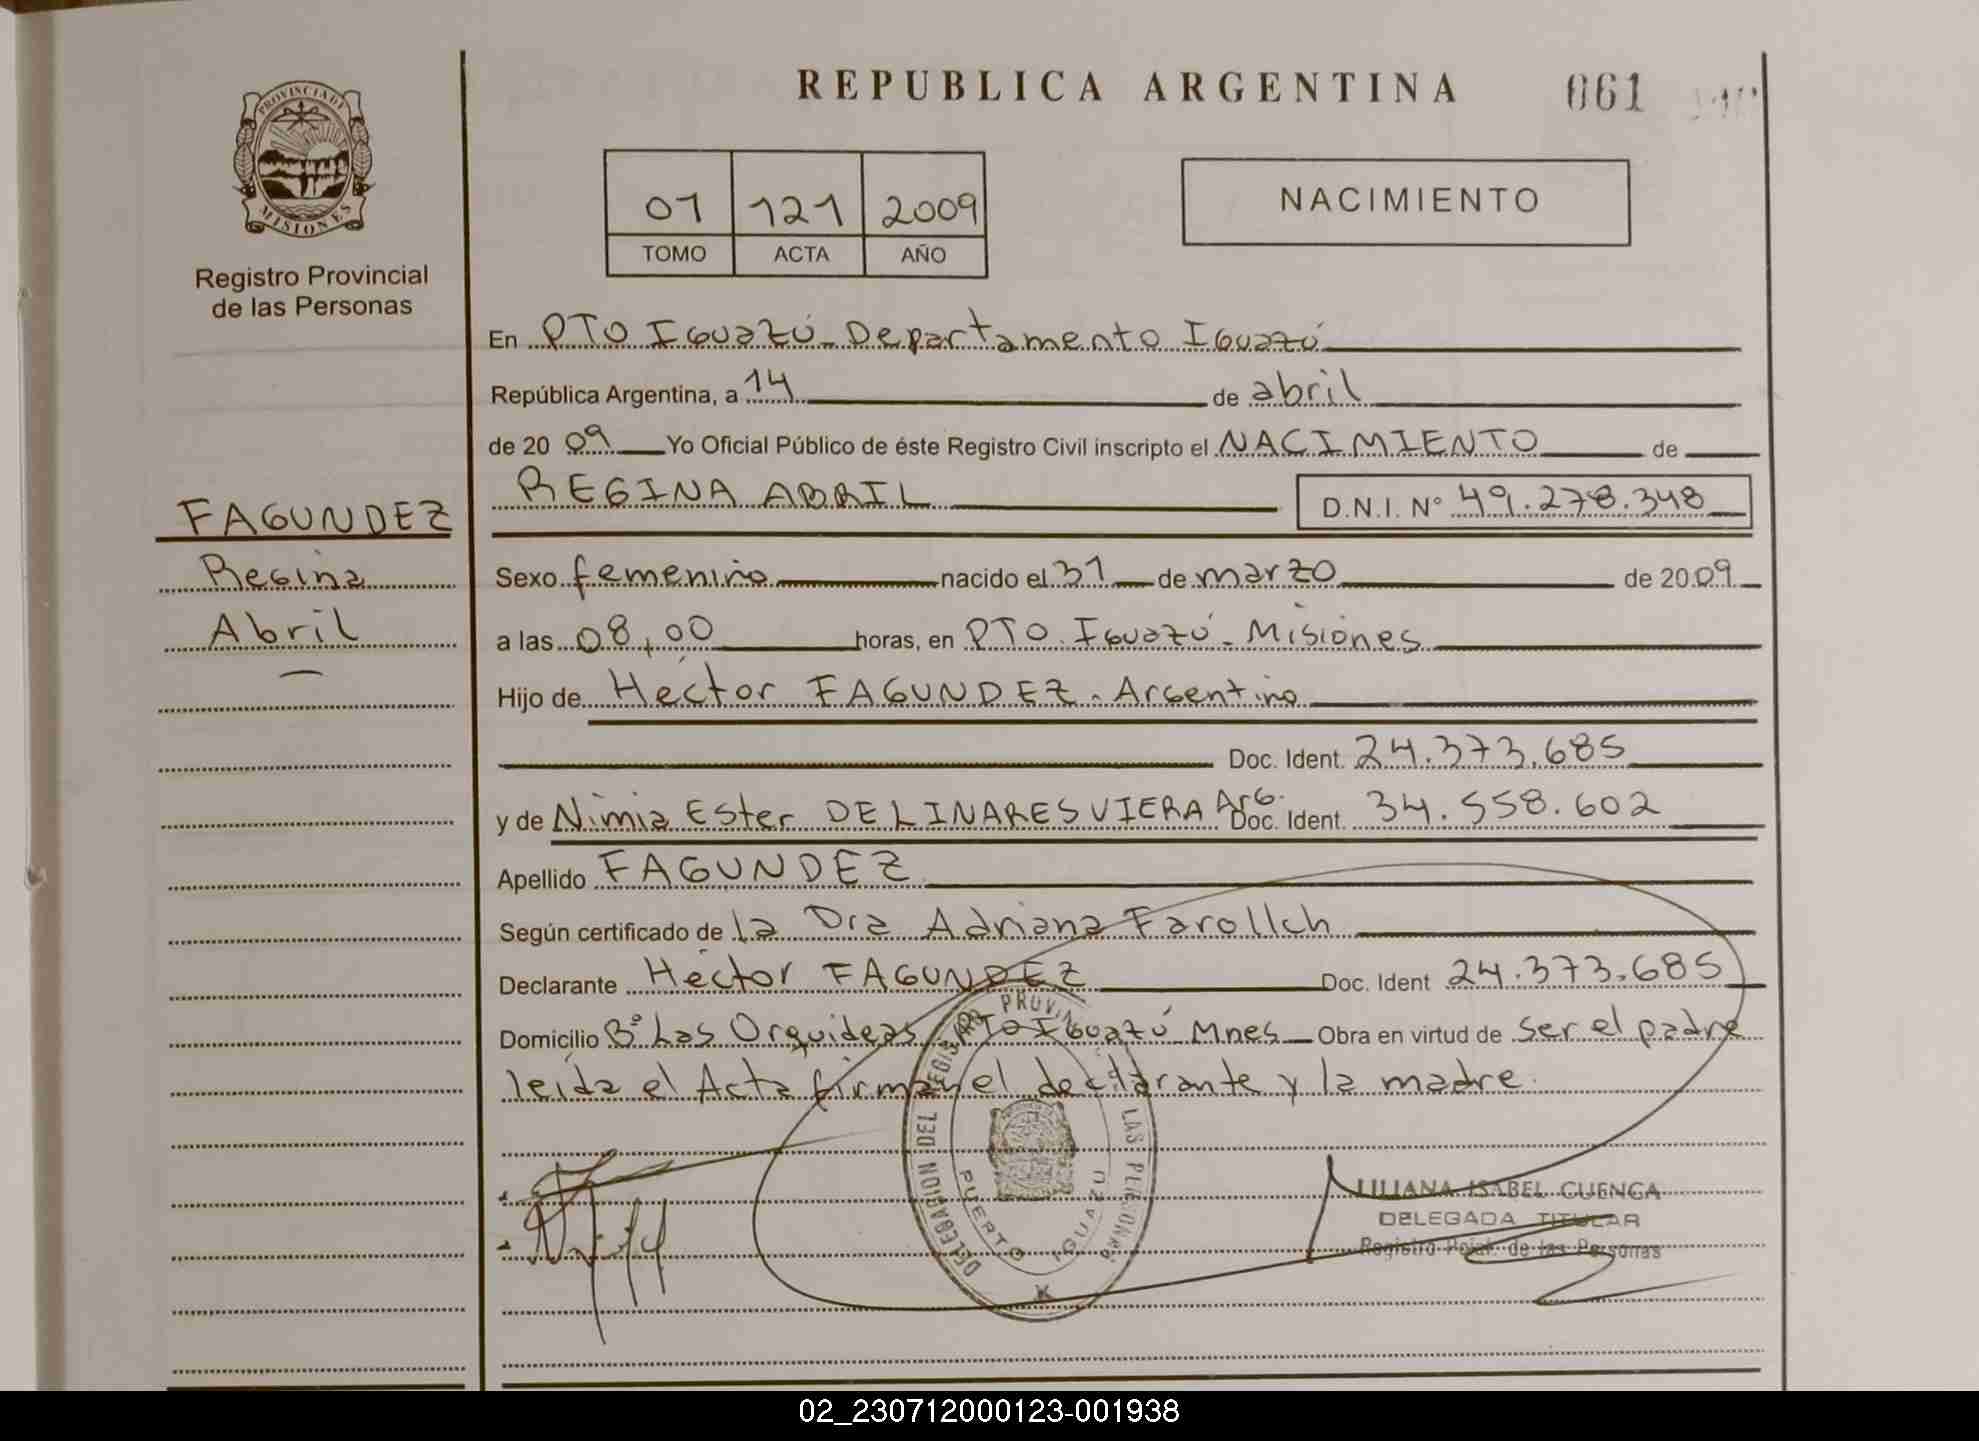 REPUBLICA ARGENTINA 061
PROVINCIA DE
MISIONES
Registro Provincial
de las Personas
01 121 2009
TOMO ACTA AÑO
NACIMIENTO
En PTO Iguazú - Departamento Iguazú
República Argentina, a 14 de abril
de 20 09 Yo Oficial Público de éste Registro Civil inscripto el NACIMIENTO de
REGINA ABRIL D.N.I. Nº 49.278.348
FAGUNDEZ
Regina
Abril
Sexo femenino nacido el 31 de marzo de 20 09
a las 08,00 horas, en PTO. Iguazú - Misiones
Hijo de Héctor FAGUNDEZ - Argentino
Doc. Ident. 24.373.685
y de Nimia Ester DE LINARES VIERA Arg. Doc. Ident. 34.558.602
Apellido FAGUNDEZ
Según certificado de la Dra Adriana Farollch
Declarante Héctor FAGUNDEZ Doc. Ident 24.373.685
Domicilio Bº Las Orquideas PTO Iguazú Mnes Obra en virtud de ser el padre
leída el Acta firman el declarante y la madre.
DELEGACION DEL REGISTRO PROVIN LAS PERSONAS
PUERTO IGUAZU
LILIANA ISABEL CUENCA
DELEGADA TITULAR
Registro Pcial. de las Personas
02_230712000123-001938